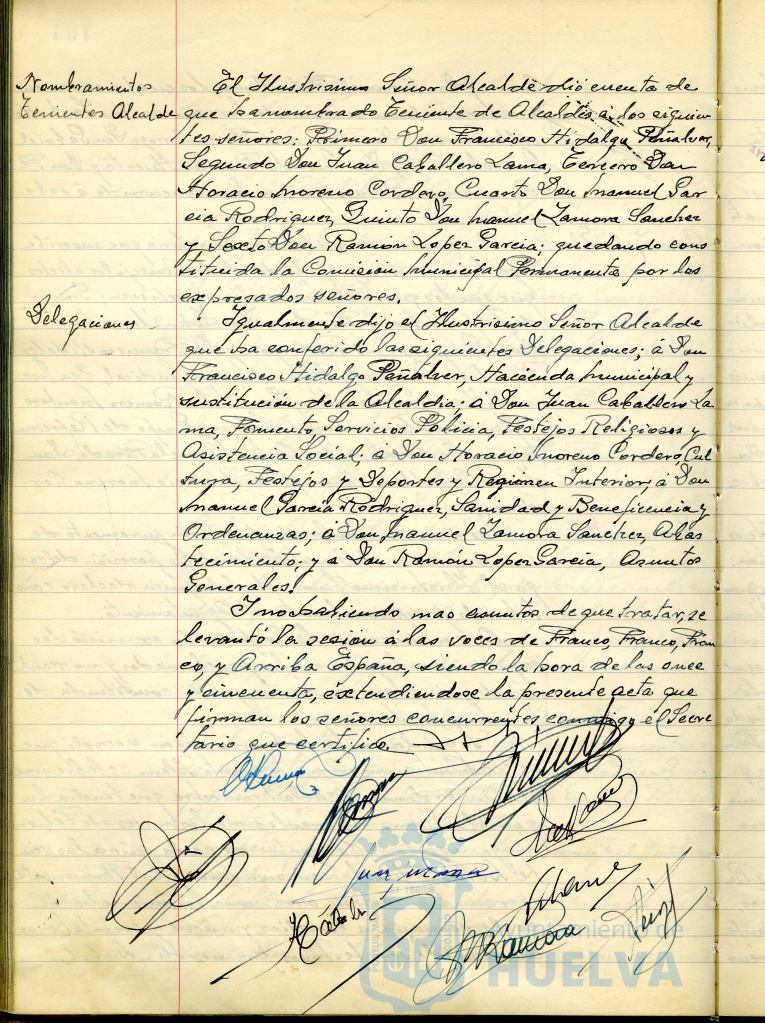 Nombramientos
Tenientes Alcalde
El Ilustrisimo Señor Alcalde dio cuenta de
que ha nombrado Teniente de Alcaldes a los siguien
tes señores: Primero Don Francisco Hidalgo Peñalver,
Segundo Don Juan Caballero Lama, Tercero Don
Horacio Moreno Cordero, Cuarto Don Manuel Gar
cia Rodriguez, Quinto Don Manuel Zamora Sanchez
y Sexto Don Ramon Lopez Garcia; quedando cons
tituida la Comisión Municipal Permanente por los
expresados señores.
Delegaciones
Igualmente dijo el Ilustrisimo Señor Alcalde
que ha conferido las siguientes Delegaciones; á Don
Francisco Hidalgo Peñalver, Hacienda Municipal y
sustitución de la Alcaldia; á Don Juan Caballero La
ma, Fomento, Servicios Policia, Festejos Religiosos y
Asistencia Social; á Don Horacio Moreno Cordero, Cul
tura, Festejos y Deportes y Regimen Interior; á Don
Manuel García Rodriguez, Sanidad y Beneficencia y
Ordenanzas; á Don Manuel Zamora Sanchez, Abas
tecimiento; y á Don Ramón Lopez García, Asuntos
Generales.
Y no habiendo mas asuntos de que tratar, se
levantó la sesión á las voces de Franco, Franco, Fran
co, y Arriba España, siendo la hora de las once
y cincuenta, extendiendose la presente acta que
firman los señores concurrentes conmigo el Secre
tario que certifico.
Ayuntamiento de
HUELVA